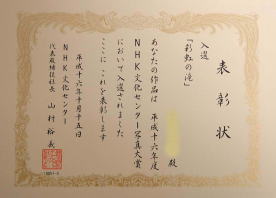 表彰状
入選
「彩虹の滝」
殿
あなたの作品は 平成十六年度
NHK文化センター写真大賞
において入選されました
ここに これを表彰します
平成十六年十月十五日
NHK文化センター
代表取締役社長 山村裕義